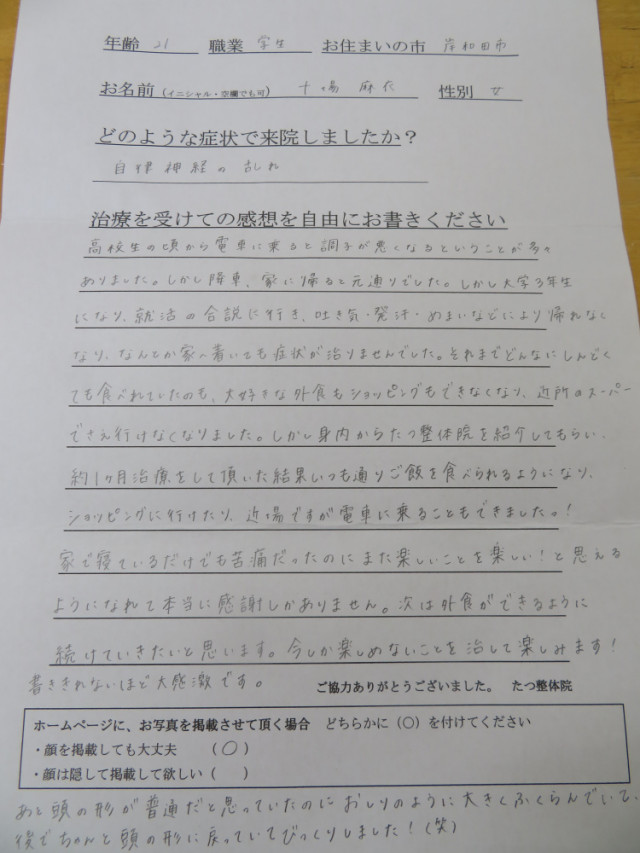 年齢 21 職業 学生 お住まいの市 岸和田市
お名前（イニシャル・空欄でも可） 十場 麻衣 性別 女
どのような症状で来院しましたか？
自律神経の乱れ
治療を受けての感想を自由にお書きください
高校生の頃から電車に乗ると調子が悪くなるということが多々
ありました。しかし降車、家に帰ると元通りでした。しかし大学3年生
になり、就活の合説に行き、吐き気・発汗・めまいなどにより帰れなく
なり、なんとか家へ着いても症状が治りませんでした。それまでどんなにしんどく
ても食べれていたのも、大好きな外食もショッピングもできなくなり、近所のスーパー
でさえ行けなくなりました。しかし身内からたつ整体院を紹介してもらい、
約1ヶ月治療をして頂いた結果いつも通りご飯を食べられるようになり、
ショッピングに行けたり、近場ですが電車に乗ることもできましたっ！
家で寝ているだけでも苦痛だったのにまた楽しいことを楽しい！と思える
ようになれて本当に感謝しかありません。次は外食ができるように
続けていきたいと思います。今しか楽しめないことを治して楽しみます！
書ききれないほど大感激です。 ご協力ありがとうございました。 たつ整体院
ホームページに、お写真を掲載させて頂く場合 どちらかに（○）を付けてください
・顔を掲載しても大丈夫 （○）
・顔は隠して掲載して欲しい（ ）
あと頭の形が普通だと思っていたのにおしりのように大きくふくらんでいて、
後でちゃんと頭の形に戻っていてびっくりしました！(笑)